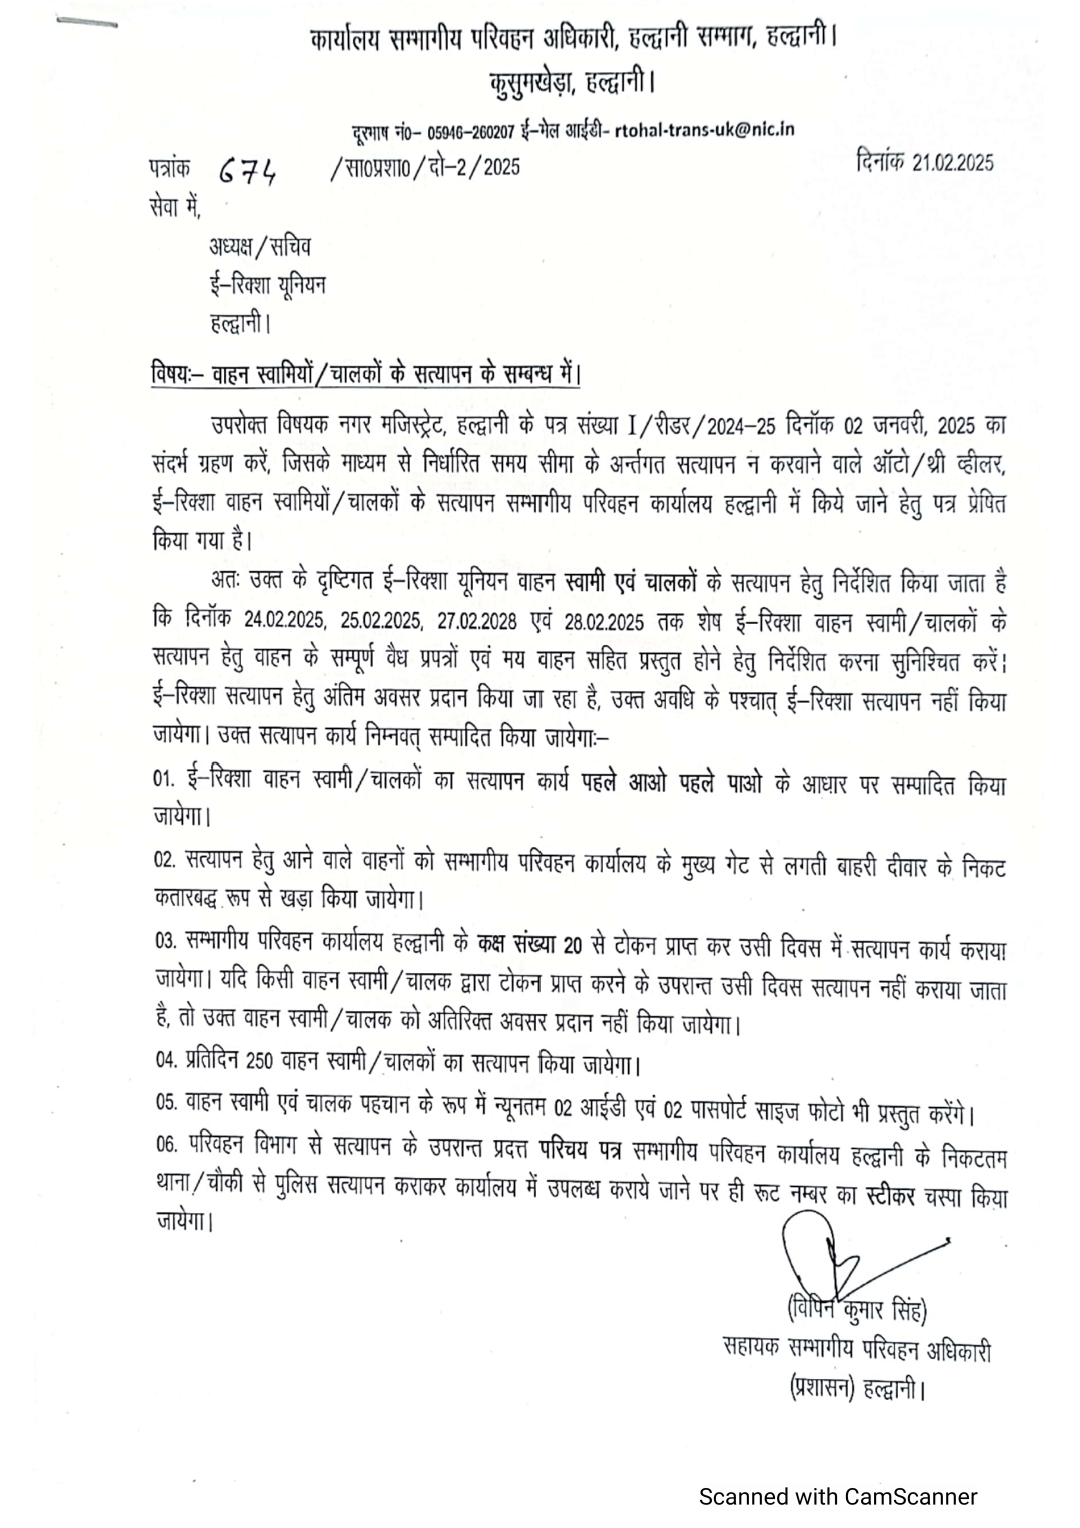 कार्यालय सम्भागीय परिवहन अधिकारी, हल्द्वानी सम्भाग, हल्द्वानी।
कुसुमखेड़ा, हल्द्वानी।
दूरभाष नं0– 05946–260207 ई–मेल आईडी– rtohal-trans-uk@nic.in
पत्रांक 674 /सा0प्रशा0/दो–2/2025 दिनांक 21.02.2025
सेवा में,
अध्यक्ष/सचिव
ई–रिक्शा यूनियन
हल्द्वानी।
विषयः– वाहन स्वामियों/चालकों के सत्यापन के सम्बन्ध में।
उपरोक्त विषयक नगर मजिस्ट्रेट, हल्द्वानी के पत्र संख्या I/रीडर/2024–25 दिनॉक 02 जनवरी, 2025 का
संदर्भ ग्रहण करें, जिसके माध्यम से निर्धारित समय सीमा के अर्न्तगत सत्यापन न करवाने वाले ऑटो/थ्री व्हीलर,
ई–रिक्शा वाहन स्वामियों/चालकों के सत्यापन सम्भागीय परिवहन कार्यालय हल्द्वानी में किये जाने हेतु पत्र प्रेषित
किया गया है।
अतः उक्त के दृष्टिगत ई–रिक्शा यूनियन वाहन स्वामी एवं चालकों के सत्यापन हेतु निर्देशित किया जाता है
कि दिनॉक 24.02.2025, 25.02.2025, 27.02.2028 एवं 28.02.2025 तक शेष ई–रिक्शा वाहन स्वामी/चालकों के
सत्यापन हेतु वाहन के सम्पूर्ण वैध प्रपत्रों एवं मय वाहन सहित प्रस्तुत होने हेतु निर्देशित करना सुनिश्चित करें।
ई–रिक्शा सत्यापन हेतु अंतिम अवसर प्रदान किया जा रहा है, उक्त अवधि के पश्चात् ई–रिक्शा सत्यापन नहीं किया
जायेगा। उक्त सत्यापन कार्य निम्नवत् सम्पादित किया जायेगाः–
01. ई–रिक्शा वाहन स्वामी/चालकों का सत्यापन कार्य पहले आओ पहले पाओ के आधार पर सम्पादित किया
जायेगा।
02. सत्यापन हेतु आने वाले वाहनों को सम्भागीय परिवहन कार्यालय के मुख्य गेट से लगती बाहरी दीवार के निकट
कतारबद्ध रूप से खड़ा किया जायेगा।
03. सम्भागीय परिवहन कार्यालय हल्द्वानी के कक्ष संख्या 20 से टोकन प्राप्त कर उसी दिवस में सत्यापन कार्य कराया
जायेगा। यदि किसी वाहन स्वामी/चालक द्वारा टोकन प्राप्त करने के उपरान्त उसी दिवस सत्यापन नहीं कराया जाता
है, तो उक्त वाहन स्वामी/चालक को अतिरिक्त अवसर प्रदान नहीं किया जायेगा।
04. प्रतिदिन 250 वाहन स्वामी/चालकों का सत्यापन किया जायेगा।
05. वाहन स्वामी एवं चालक पहचान के रूप में न्यूनतम 02 आईडी एवं 02 पासपोर्ट साइज फोटो भी प्रस्तुत करेंगे।
06. परिवहन विभाग से सत्यापन के उपरान्त प्रदत्त परिचय पत्र सम्भागीय परिवहन कार्यालय हल्द्वानी के निकटतम
थाना/चौकी से पुलिस सत्यापन कराकर कार्यालय में उपलब्ध कराये जाने पर ही रूट नम्बर का स्टीकर चस्पा किया
जायेगा।
(विपिन कुमार सिंह)
सहायक सम्भागीय परिवहन अधिकारी
(प्रशासन) हल्द्वानी।
Scanned with CamScanner